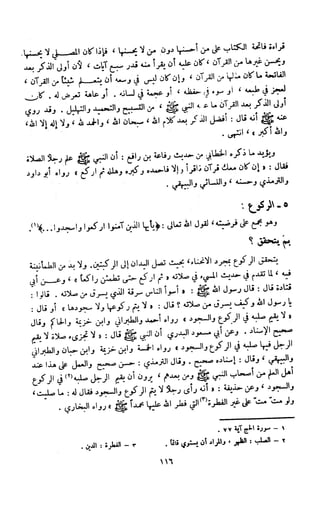 قراءة فاتحة الكتاب على من أحسنها دون من لا يحسنها ، فإذا كان المصلي لا يحسنها
ويحسن غيرها من القرآن ، كان عليه أن يقرأ منه قدر سبع آيات ، لأن أولى الذكر بعد
الفاتحة ما كان مثلها من القرآن ، وإن كان ليس في وسعه أن يتعلم شيئاً من القرآن ،
لعجز في طبعه ، او سوء في حفظه ، أو عجمة في لسانه . أو عاهة تعرض له . كان
أولى الذكر بعد القرآن ما علمه النبي ﷺ ، من التسبيح والتحميد والتهليل . وقد روي
عنه ﷺ أنه قال : أفضل الذكر بعد كلام الله ، سبحان الله ، والحمد لله ، ولا إله إلا الله ،
والله أكبر » ، انتهى .
ويؤيد ما ذكره الخطابي من حديث رفاعة بن رافع : أن النبي ﷺ علم رجلاً الصلاة
فقال : « إن كان معك قرآن فاقرأ وإلا فاحمده وكبره وهلله ثم اركع » رواه أبو داود
والترمذي وحسنه ، والنسائي والبيهقي .
٥ - الركوع :
وهو مجمع على فرضيته ، لقول الله تعالى : ( يأيها الذين آمنوا اركعوا واسجدوا...)(١).
بم يتحقق ؟
يتحقق الركوع بمجرد الانحناء ، بحيث تصل اليدان إلى الركبتين . ولا بد من الطمأنينة
فيه ، لما تقدم في حديث المسيء في صلاته « ثم اركع حتى تطمئن راكعاً » ، وعن أبي
قتادة قال : قال رسول الله ﷺ : « أسوأ الناس سرقة الذي يسرق من صلاته . قالوا :
يا رسول الله وكيف يسرق من صلاته ؟ قال : « لا يتم ركوعها ولا سجودها » أو قال :
« لا يقيم صلبه في الركوع والسجود » رواه أحمد والطبراني وابن خزيمة والحاكم وقال
صحيح الإسناد . وعن أبي مسعود البدري أن النبي ﷺ قال : « لا تجزىء صلاة لا يقيم
الرجل فيها صلبه في الركوع والسجود » رواه الخمسة وابن خزيمة وابن حبان والطبراني
والبيهقي ، وقال : إسناده صحيح . وقال الترمذي : حسن صحيح والعمل على هذا عند
أهل العلم من أصحاب النبي ﷺ ومن بعدهم ، يرون أن يقيم الرجل صلبه(٢) في الركوع
والسجود ، وعن حذيفة : « أنه رأى رجلاً لا يتم الركوع والسجود فقال له : ما صليت ،
ولو مت مت على غير الفطرة(٣) التي فطر الله عليها محمداً ﷺ » رواه البخاري .
١ - سورة الحج آية ٧٧ .
٢ - الصلب : الظهر ، والمراد أن يستوي قائماً . ٣ - الفطرة : الدين .
١١٦